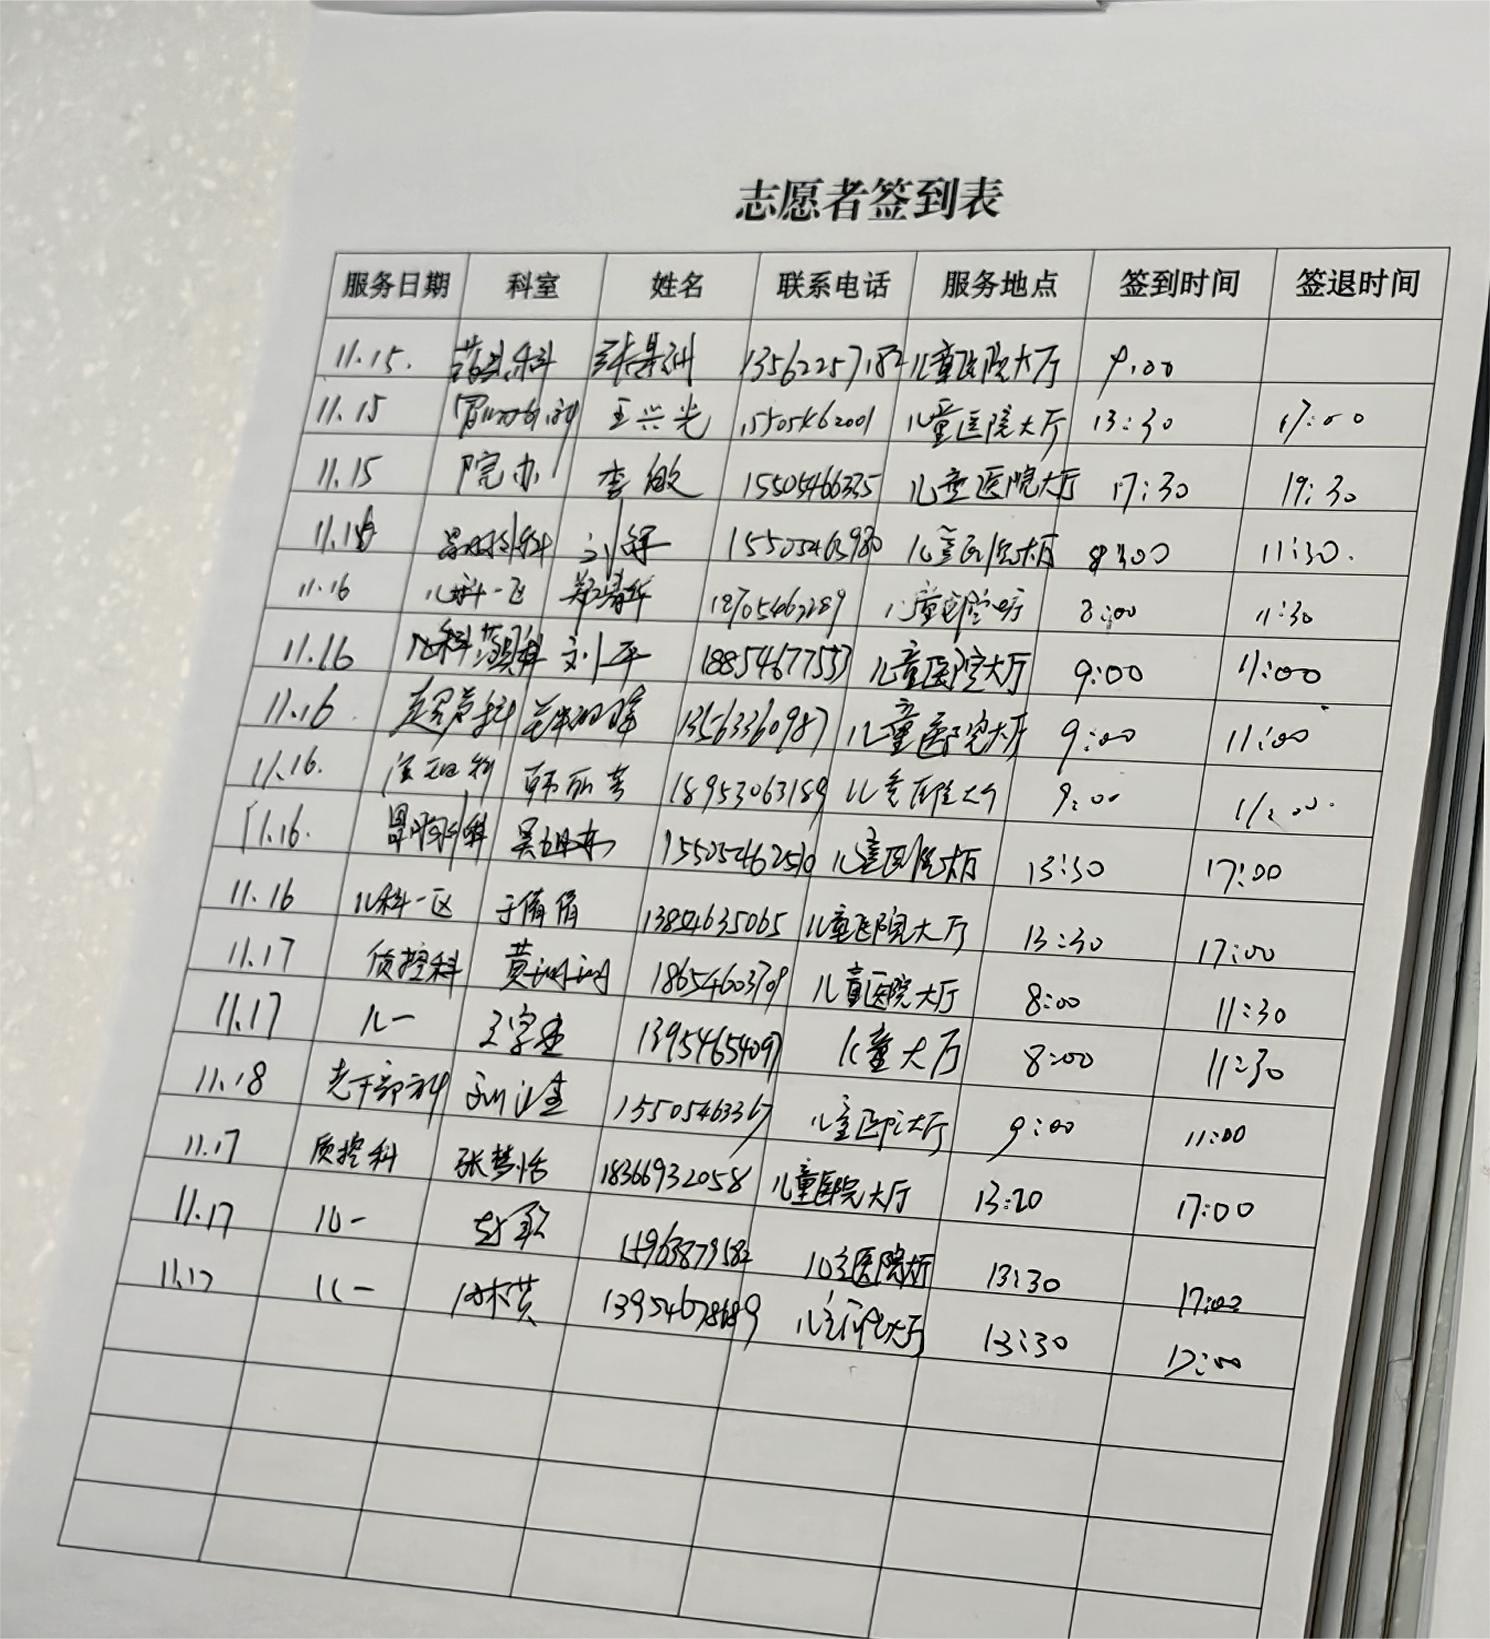 志愿者签到表
服务日期 科室 姓名 联系电话 服务地点 签到时间 签退时间
11.15. 药剂科 13562257182 儿童医院大厅 9:00
11.15 王兴光 15505462001 儿童医院大厅 13:30 17:00
11.15 院办 李敏 15505466335 儿童医院大厅 17:30 19:30
刘辉 15505463980 儿童医院大厅 8:00 11:30.
11.16 儿科一区 18705462289 儿童医院大厅 8:00 11:30
11.16 刘平 18854677553 儿童医院大厅 9:00 11:00
11.16. 超声科 13563360987 儿童医院大厅 9:00 11:00
11.16. 韩丽芳 18953063189 儿童医院大厅 9:00 11:00
11.16. 15505462510 儿童医院大厅 13:30 17:00
11.16 儿科一区 于倩倩 13854635065 儿童医院大厅 13:30 17:00
11.17 质控科 黄珊珊 18654603709 儿童医院大厅 8:00 11:30
11.17 儿一 13954654097 儿童大厅 8:00 11:30
11.18 老干部科 15505463367 儿童医院大厅 9:00 11:00
11.17 质控科 张梦恬 18366932058 儿童医院大厅 13:20 17:00
11.17 儿一 赵敏 15963879582 儿童医院大厅 13:30 17:00
11.17 儿一 13954678689 儿童医院大厅 13:30 17:00